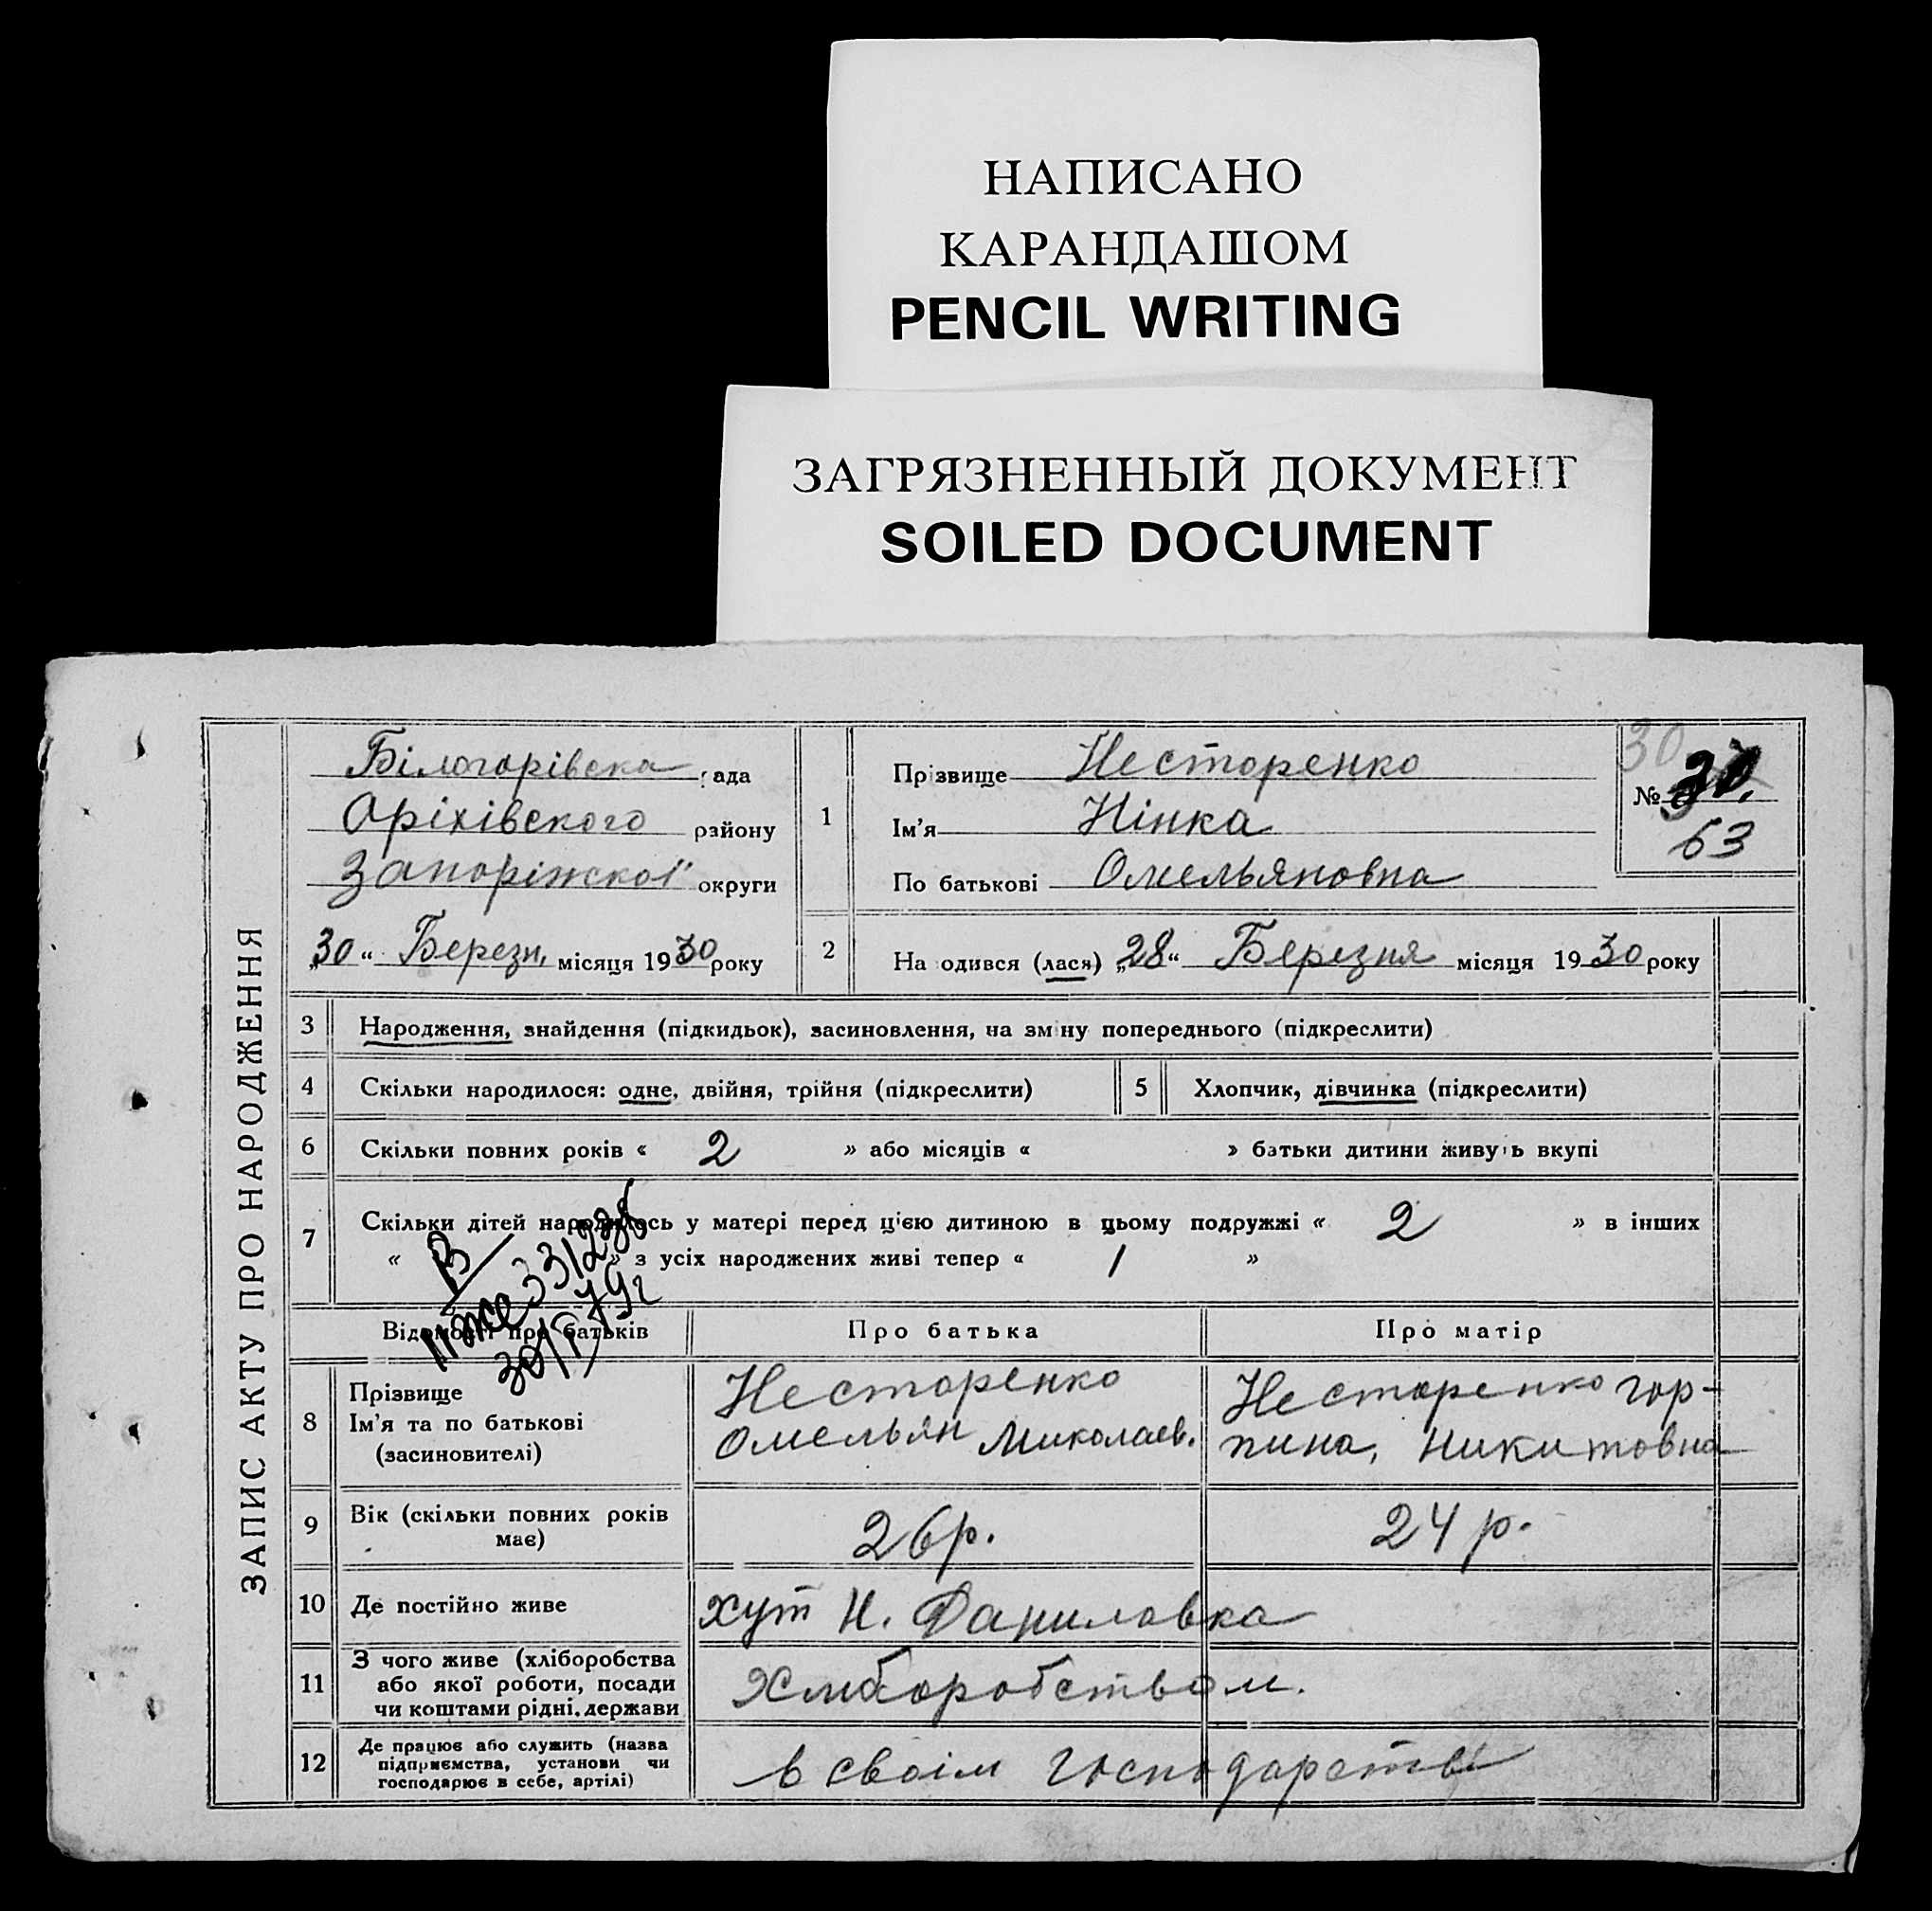 НАПИСАНО
КАРАНДАШОМ
PENCIL WRITING
ЗАГРЯЗНЕННЫЙ ДОКУМЕНТ
SOILED DOCUMENT
ЗАПИС АКТУ ПРО НАРОДЖЕННЯ
Білогорівска рада
Оріхівского району
Запоріжскої округи
„30“ Березн. місяця 1930 року
1
Прізвище Несторенко
Ім'я Нінка
По батькові Омельяновна
30
№
63
2 На одився (лася) „28“ Березня місяця 1930 року
3 Народження, знайдення (підкидьок), засиновлення, на зміну попереднього (підкреслити)
4 Скільки народилося: одне, двійня, трійня (підкреслити) 5 Хлопчик, дівчинка (підкреслити)
6 Скільки повних років « 2 » або місяців « » батьки дитини живуть вкупі
7 Скільки дітей народилось у матері перед цією дитиною в цьому подружжі « 2 » в інших
« » з усіх народжених живі тепер « 1 »
Відомості про батьків Про батька Про матір
8 Прізвище
Ім'я та по батькові
(засиновителі)
Несторенко
Омельян Миколаев.
Несторенко Гор-
пина, Никитовна
9 Вік (скільки повних років
має)
26 р. 24 р.
10 Де постійно живе хут Н. Даниловка
11 З чого живе (хліборобства
або якої роботи, посади
чи коштами рідні, держави
Хліборобством.
12 Де працює або служить (назва
підприємства, установи чи
господарює в себе, артілі)
в своім господарстві